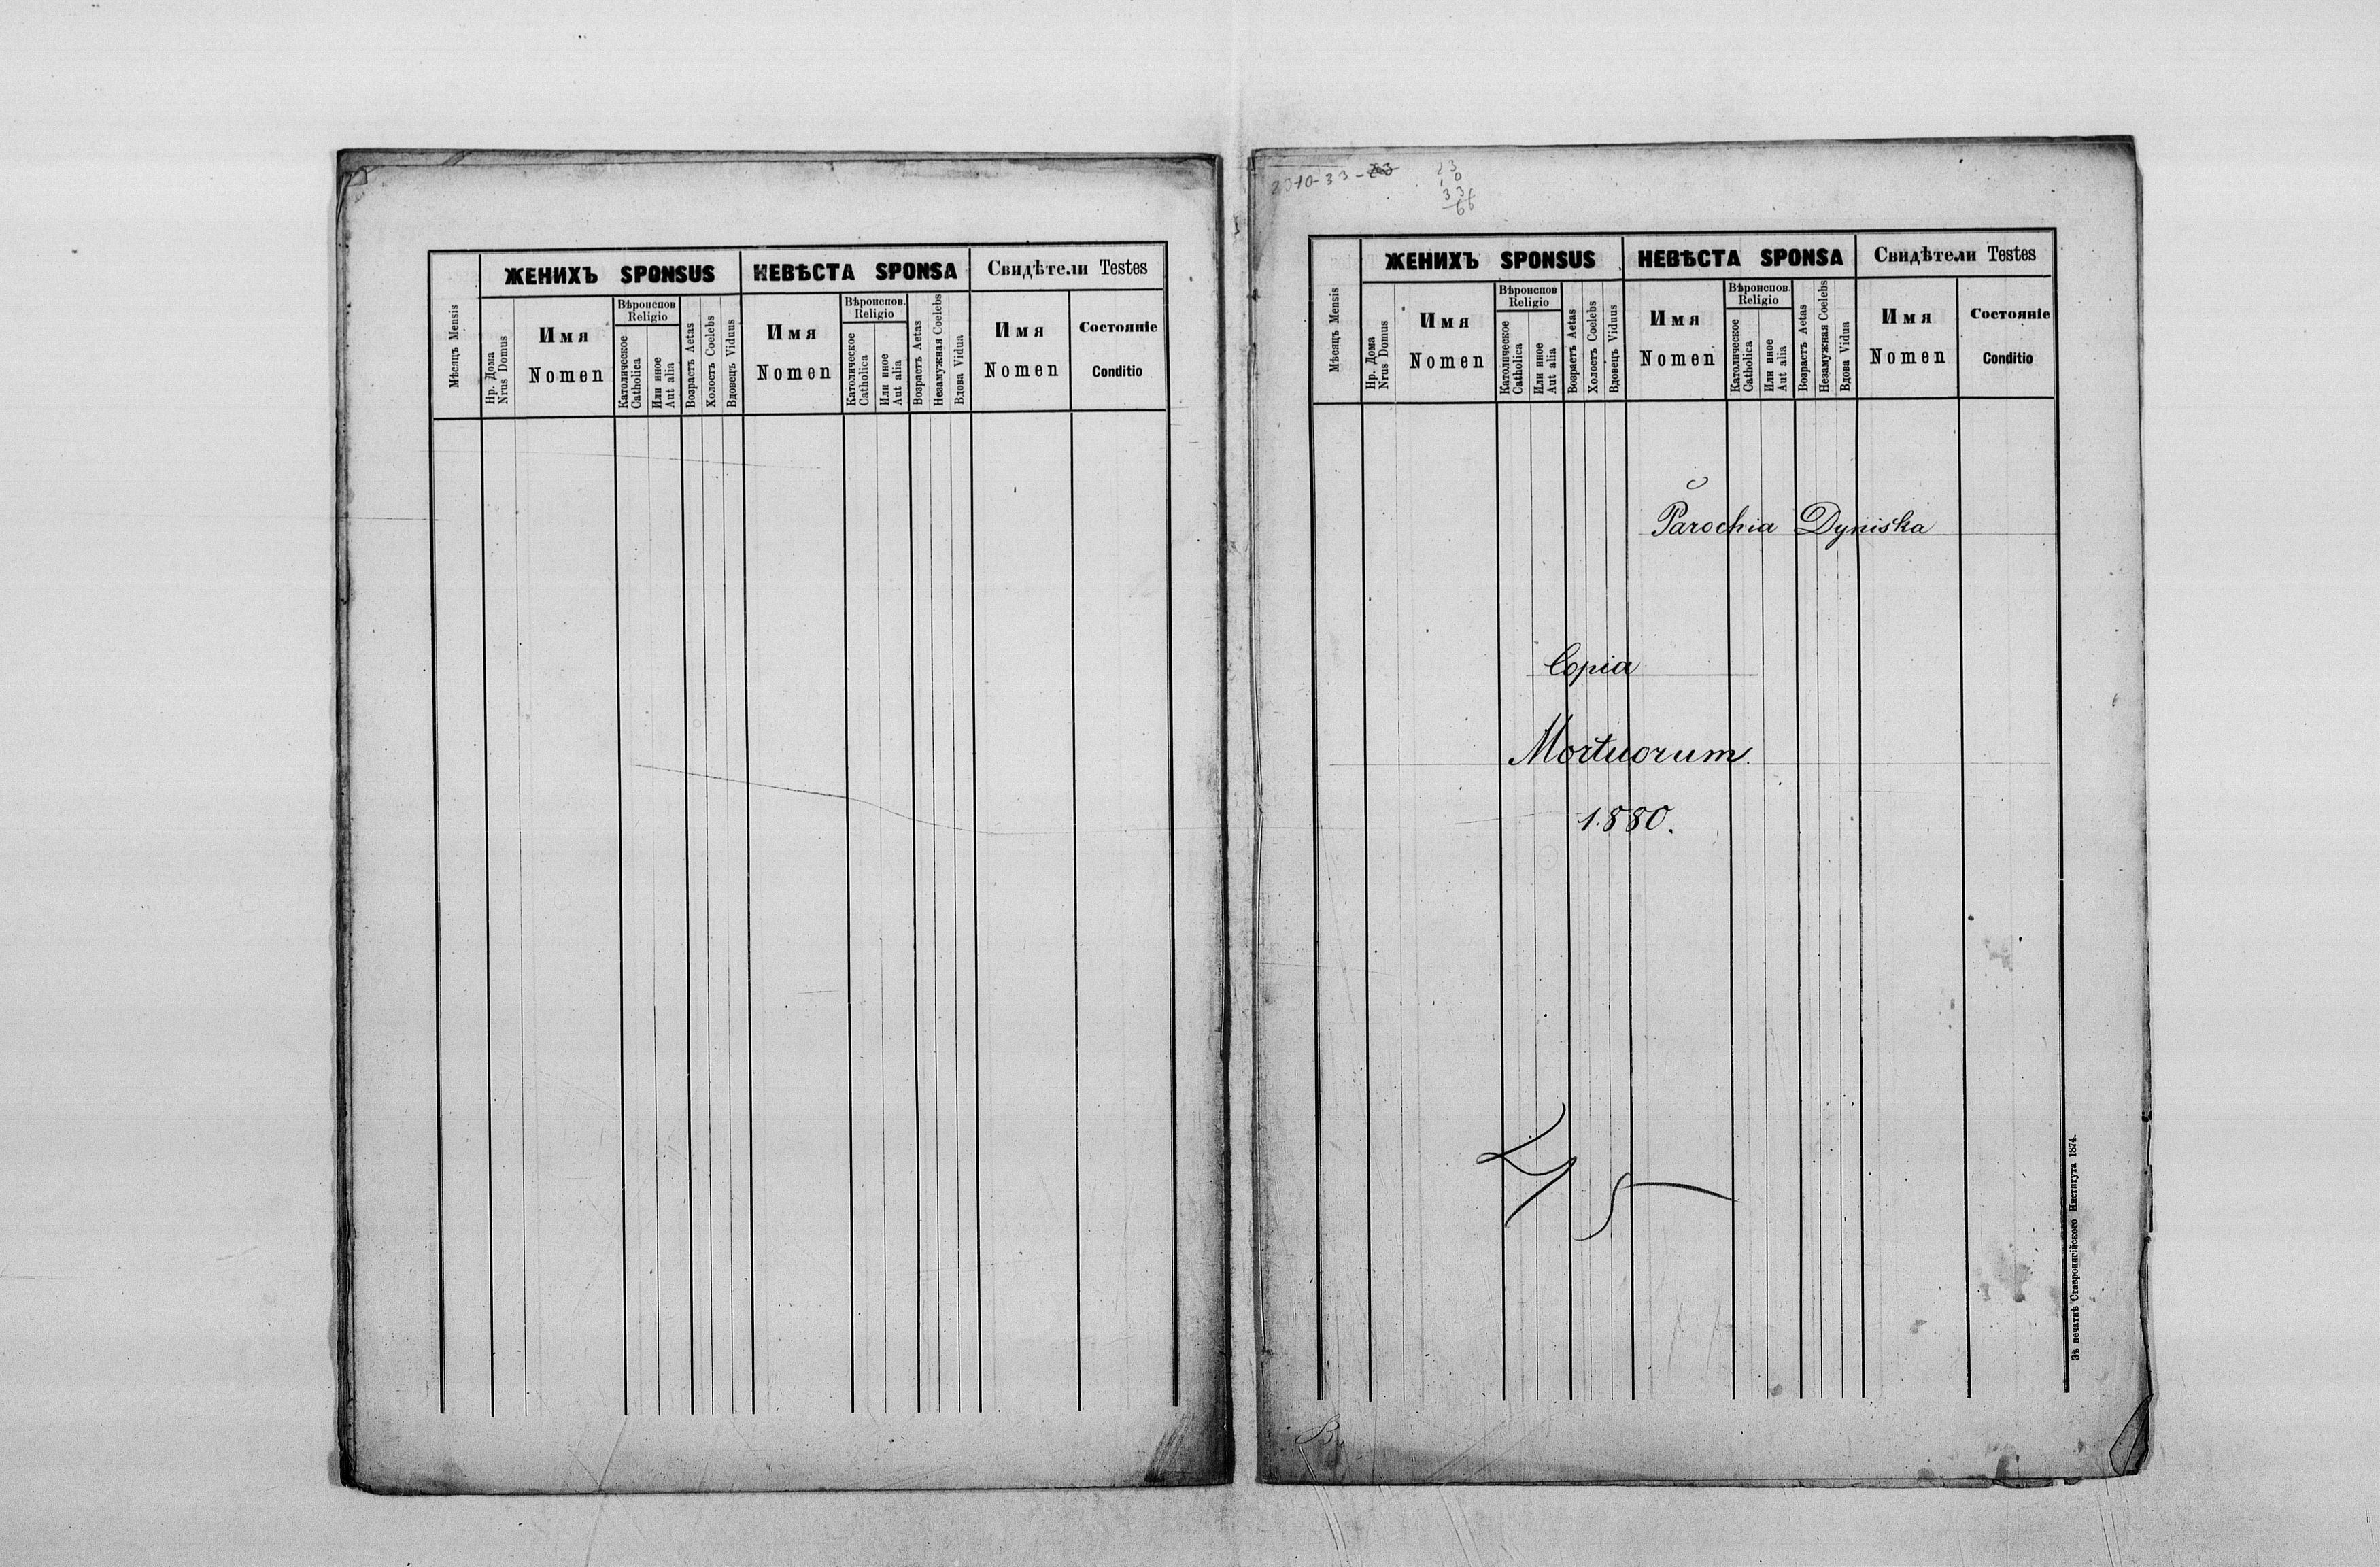 ЖЕНИХЪ SPONSUS
НЕВѢСТА SPONSA
Свидѣтели Testes
Мѣсяцъ Mensis
Нр. Дома
Nrus Domus
Имя
Nomen
Вѣроиспов
Religio
Католическое
Catholica
Или иное
Aut alia
Возрастъ Aetas
Холостъ Coelebs
Вдовецъ Viduus
Имя
Nomen
Вѣроиспов.
Religio
Католическое
Catholica
Или иное
Aut alia
Возрастъ Aetas
Незамужная Coelebs
Вдова Vidua
Имя
Nomen
Состояніе
Conditio
23
0
33
66
ЖЕНИХЪ SPONSUS
НЕВѢСТА SPONSA
Свидѣтели Testes
Мѣсяцъ Mensis
Нр. Дома
Nrus Domus
Имя
Nomen
Вѣроиспов
Religio
Католическое
Catholica
Или иное
Aut alia
Возрастъ Aetas
Холостъ Coelebs
Вдовецъ Viduus
Имя
Nomen
Вѣроиспов.
Religio
Католическое
Catholica
Или иное
Aut alia
Возрастъ Aetas
Незамужная Coelebs
Вдова Vidua
Имя
Nomen
Состояніе
Conditio
Parochia Dyniska
Copia
Mortuorum.
1880.
45
Зъ печатнѣ Ставропигійского Института 1874.